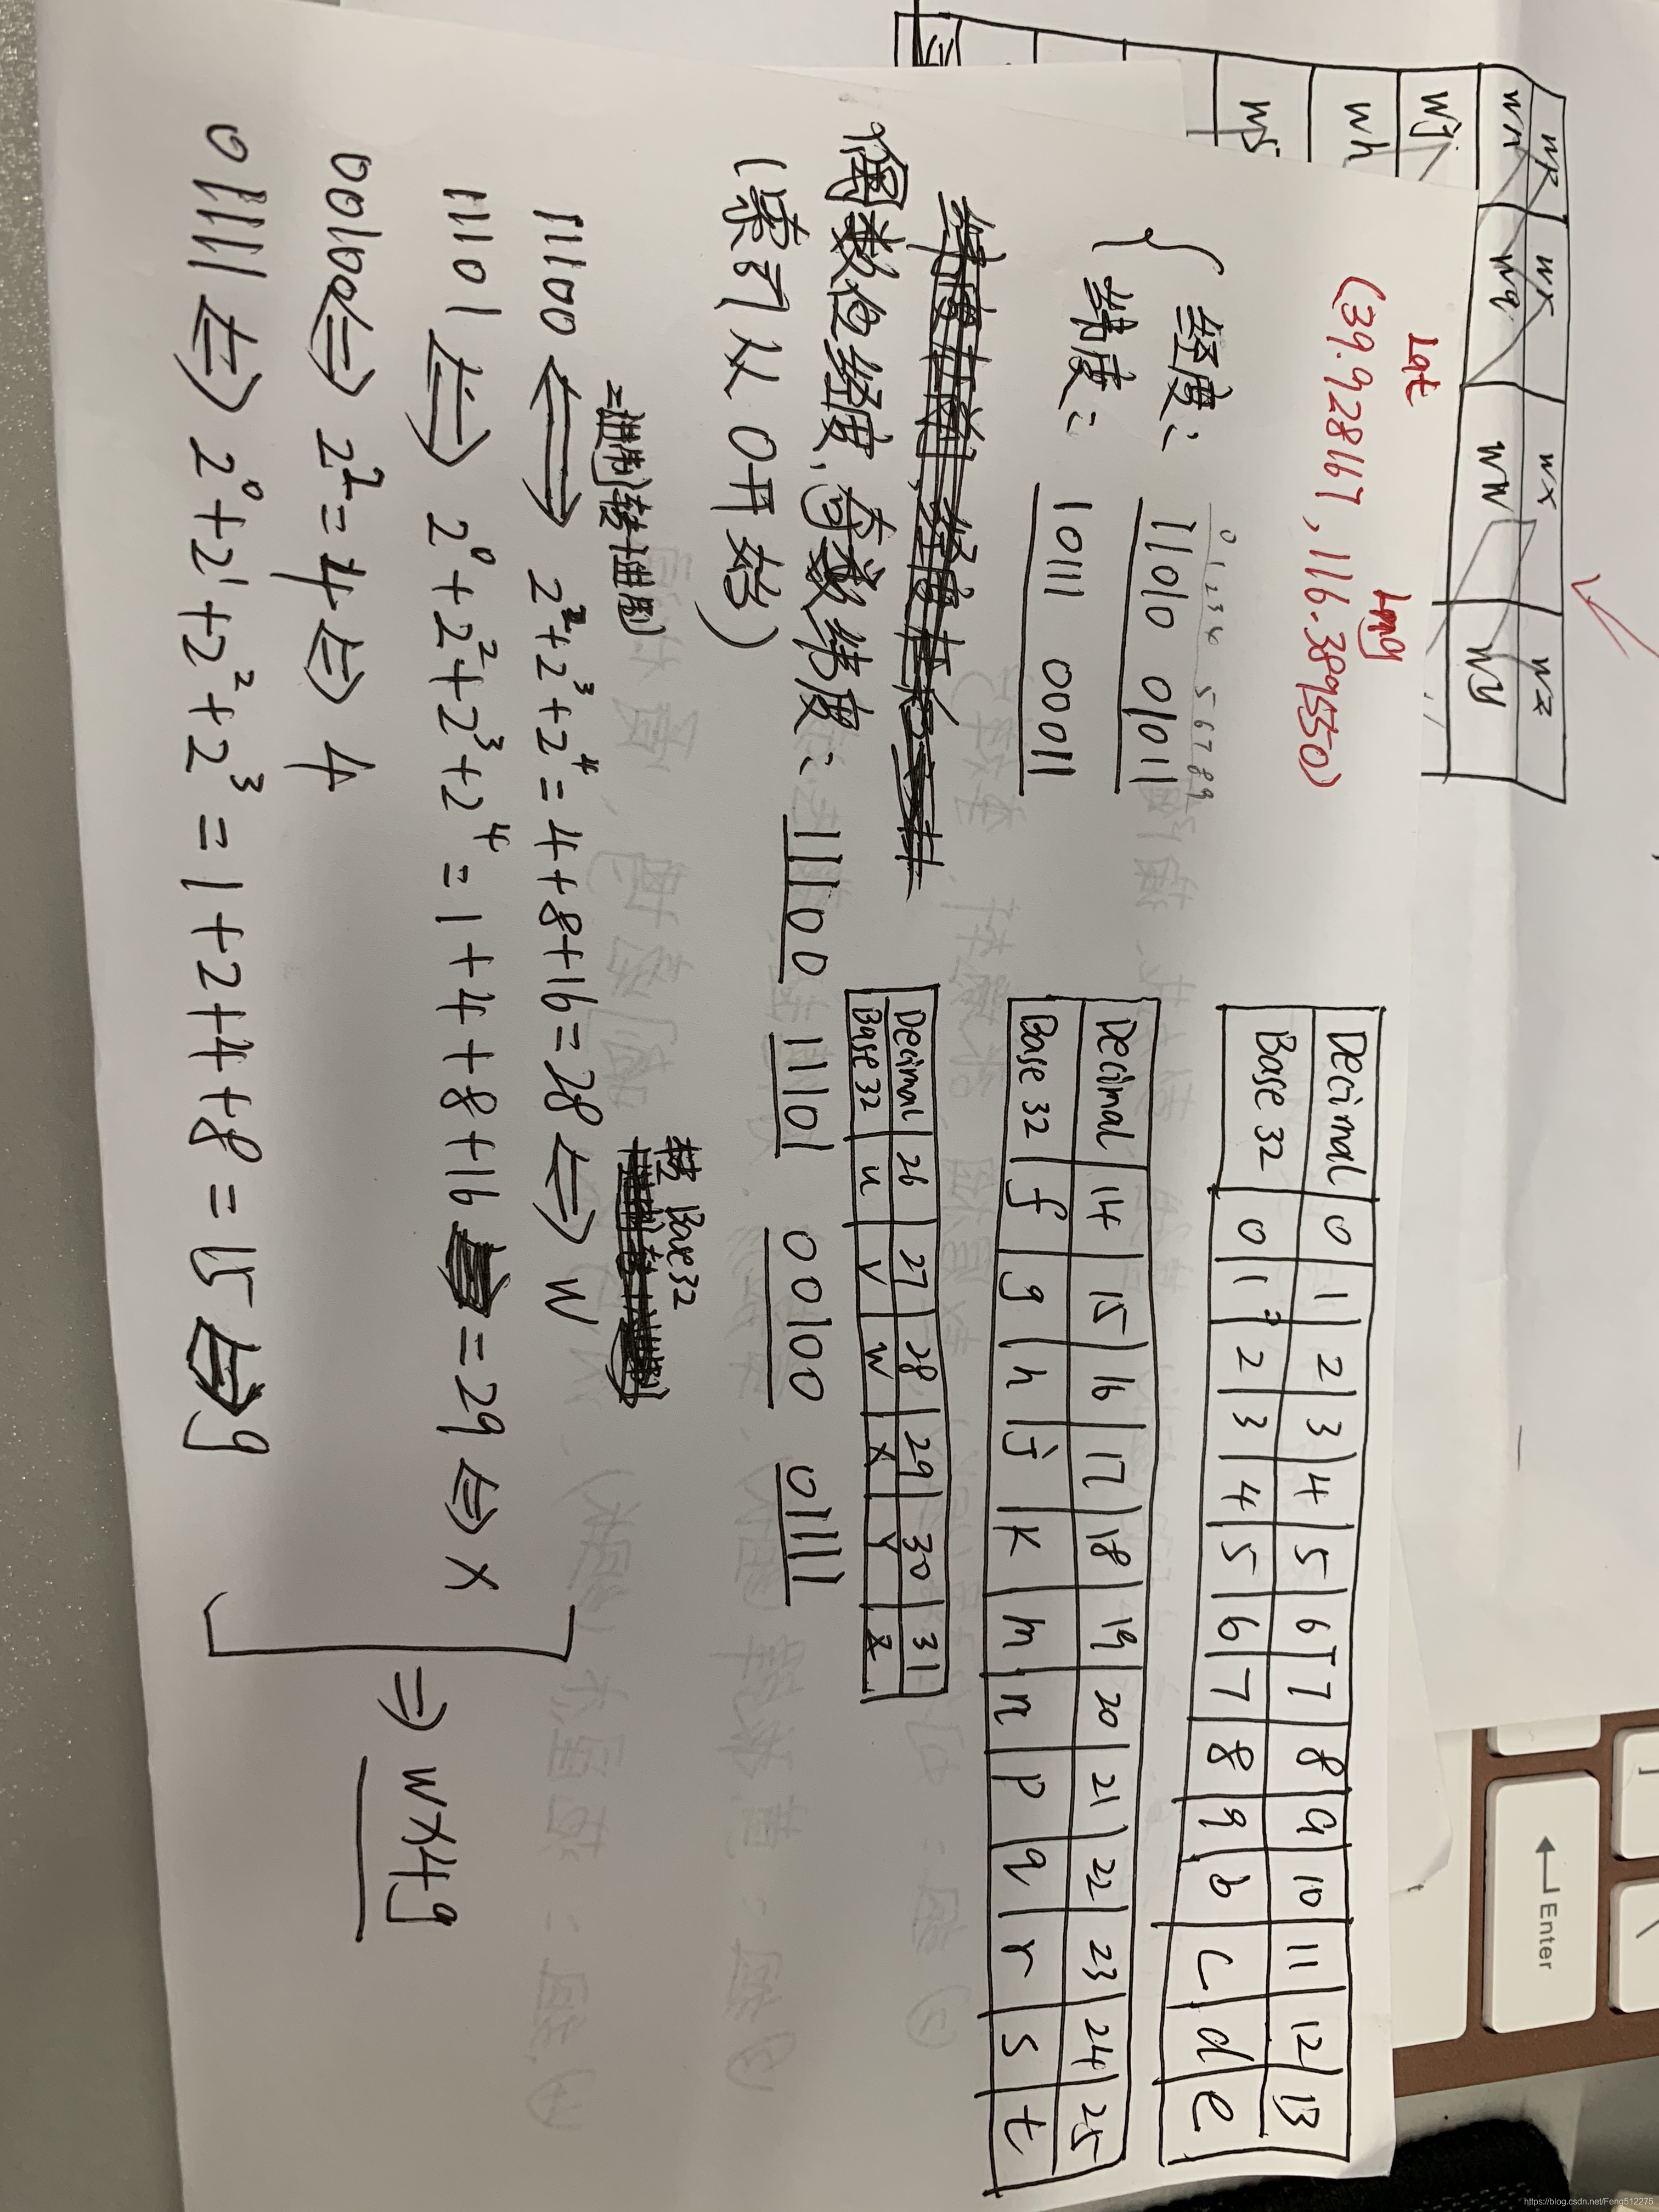 wp wr wx wz
wn wq wW wy
wj
wh
w5
Lat Long
(39.928167, 116.389550)
0 1 2 3 4 5 6 7 8 9
经度: 11010 01011
纬度: 10111 00011
偶数包经度,奇数纬度: 11100 11101 00100 01111
(索引从0开始)
Decimal 0 1 2 3 4 5 6 7 8 9 10 11 12 13
Base 32 0 1 2 3 4 5 6 7 8 9 b c d e
Decimal 14 15 16 17 18 19 20 21 22 23 24 25
Base 32 f g h j k m n p q r s t
Decimal 26 27 28 29 30 31
Base 32 u v w x y z
二进制转十进制 转 Base32
11100 ⟺ 2²+2³+2⁴=4+8+16=28 ⟺ w
11101 ⟺ 2⁰+2²+2³+2⁴=1+4+8+16=29 ⟺ x
00100 ⟺ 2²=4 ⟺ 4
01111 ⟺ 2⁰+2¹+2²+2³=1+2+4+8=15 ⟺ g
⇒ wx4g
Enter
https://blog.csdn.net/Feng512275